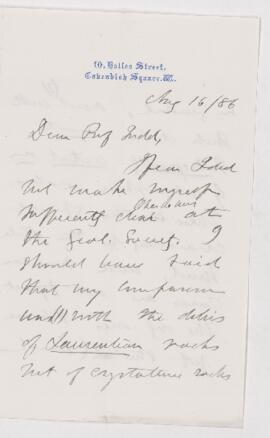 10, Holles Street,
Cavendish Square, W.
Aug 16/86
Dear Prof Judd,
I fear I did
not make myself
sufficiently clear at
the Geol. Society. I
should have said
that my comparison
was with the debris
of Laurentian rocks
not of crystalline rocks